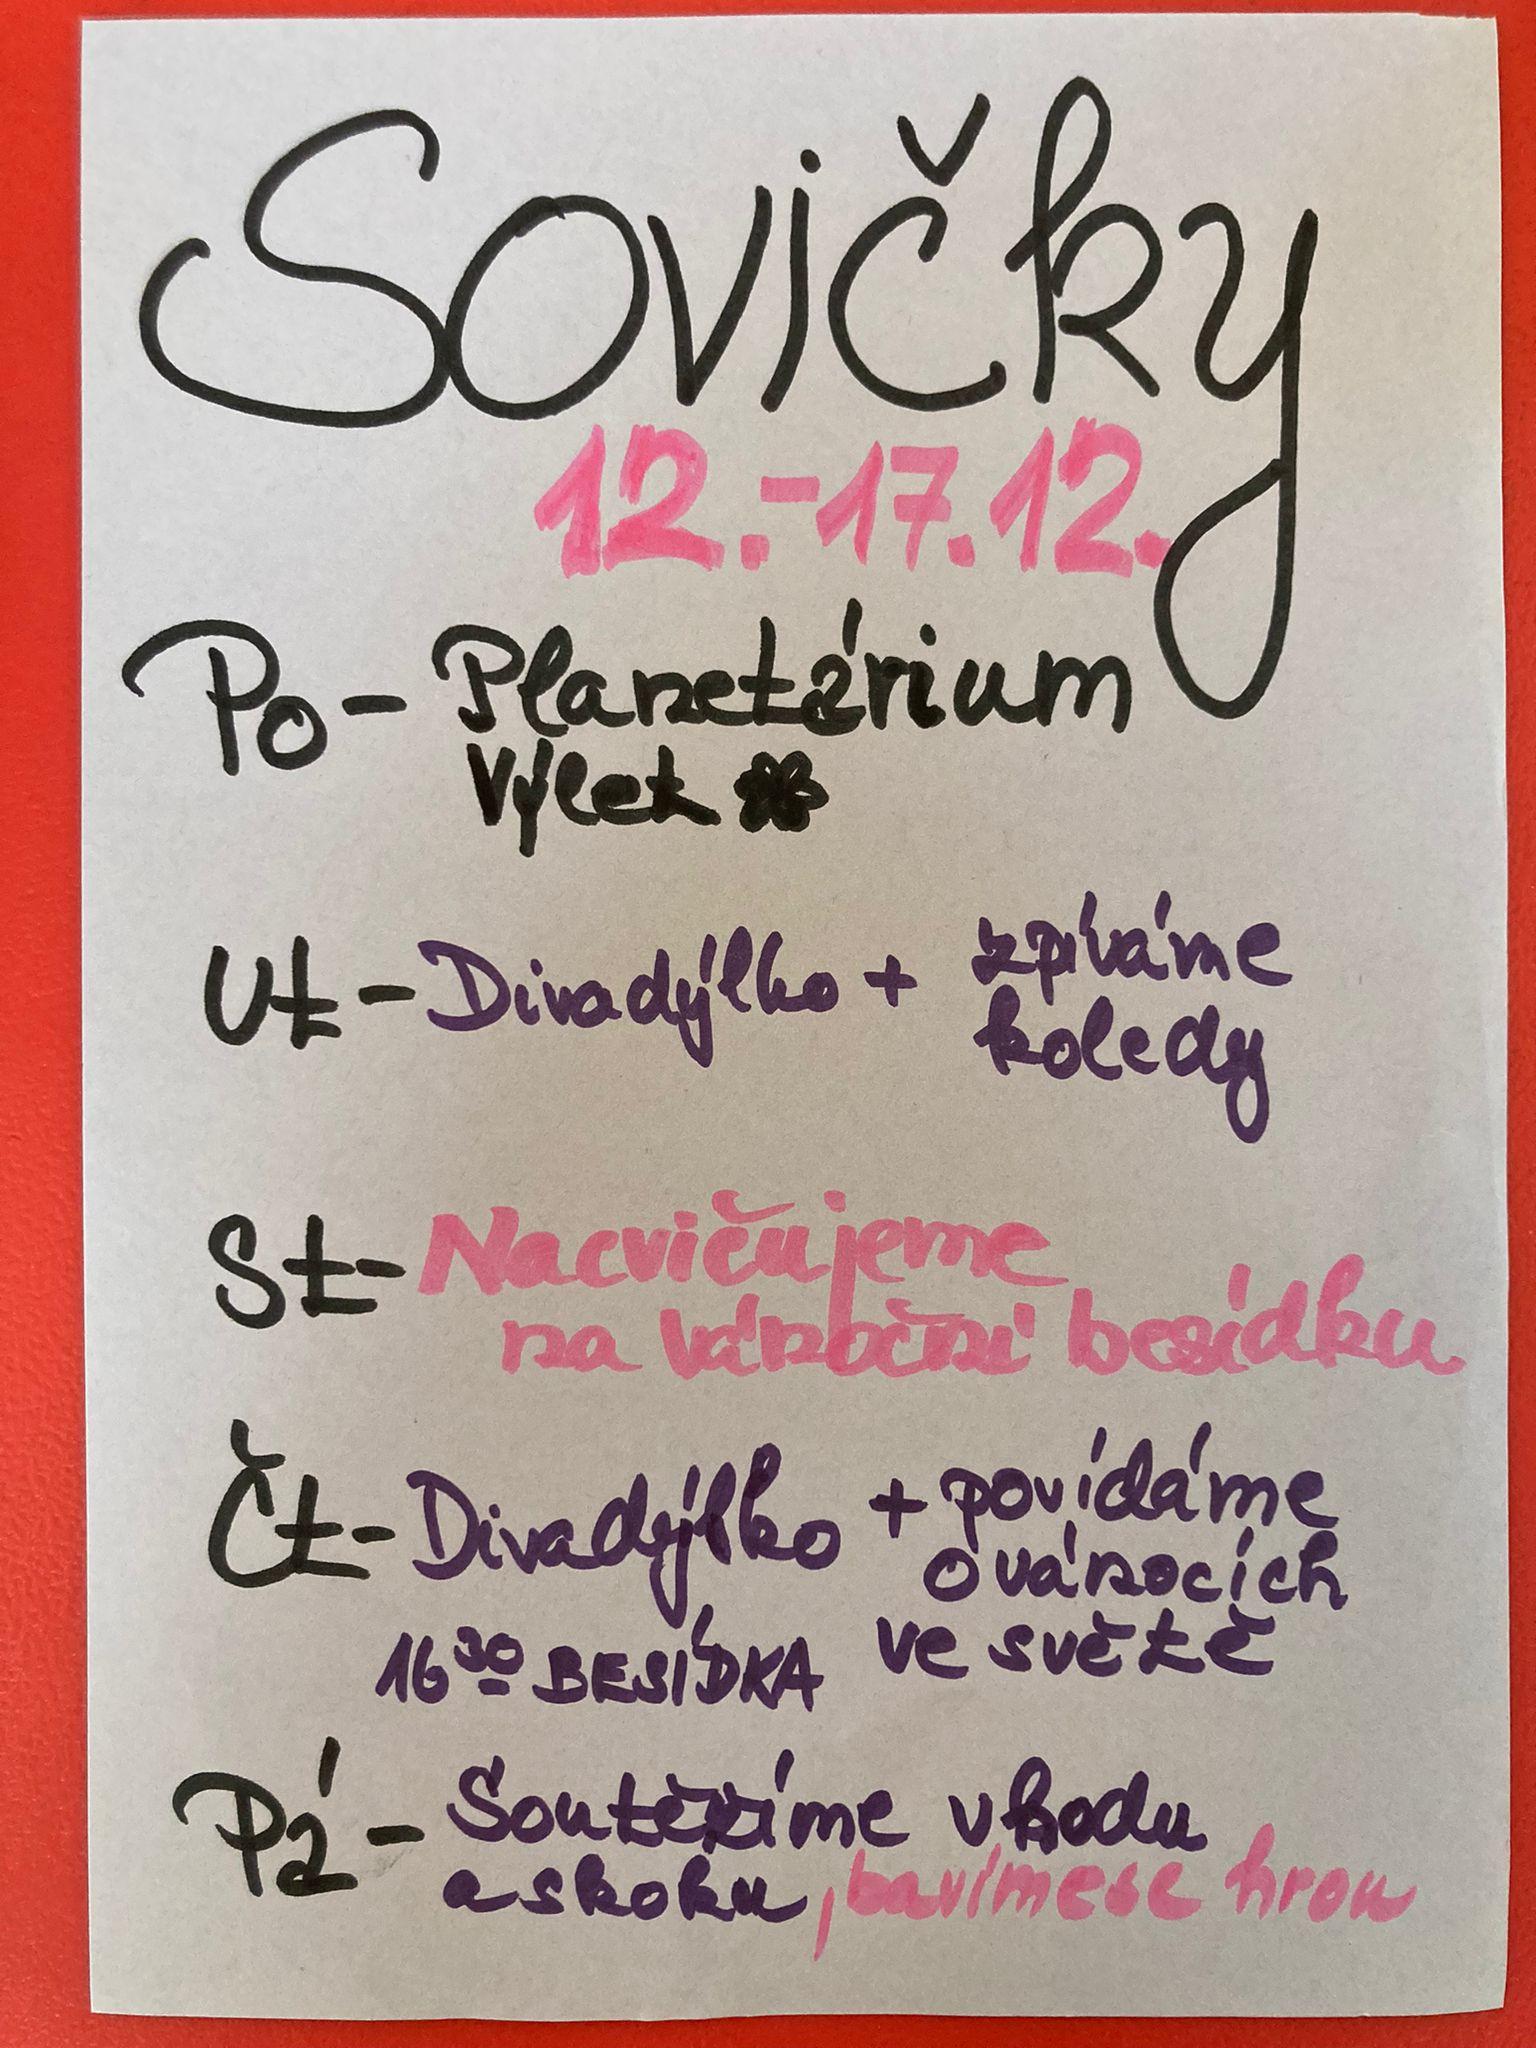 Sovičky
12.-17.12.
Po- Planetárium
Výlet
Ut- Divadýlko + zpíváme
koledy
St- Nacvičujeme
na vánoční besídku
Čt- Divadýlko + povídáme
o vánocích
ve světě
16 30 BESÍDKA
Pá- Soutěžíme v hodu
a skoku, bavíme se hrou